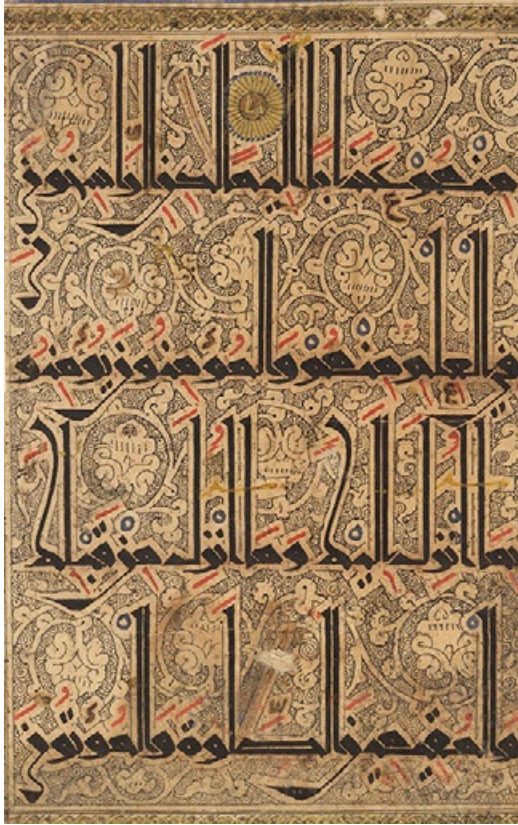 منهم عذابا اليما لكن الرسخون
في العلم منهم والمومنون يومنون
بما انزل اليك وما انزل من قبلك
والمقيمين الصلوة والموتون